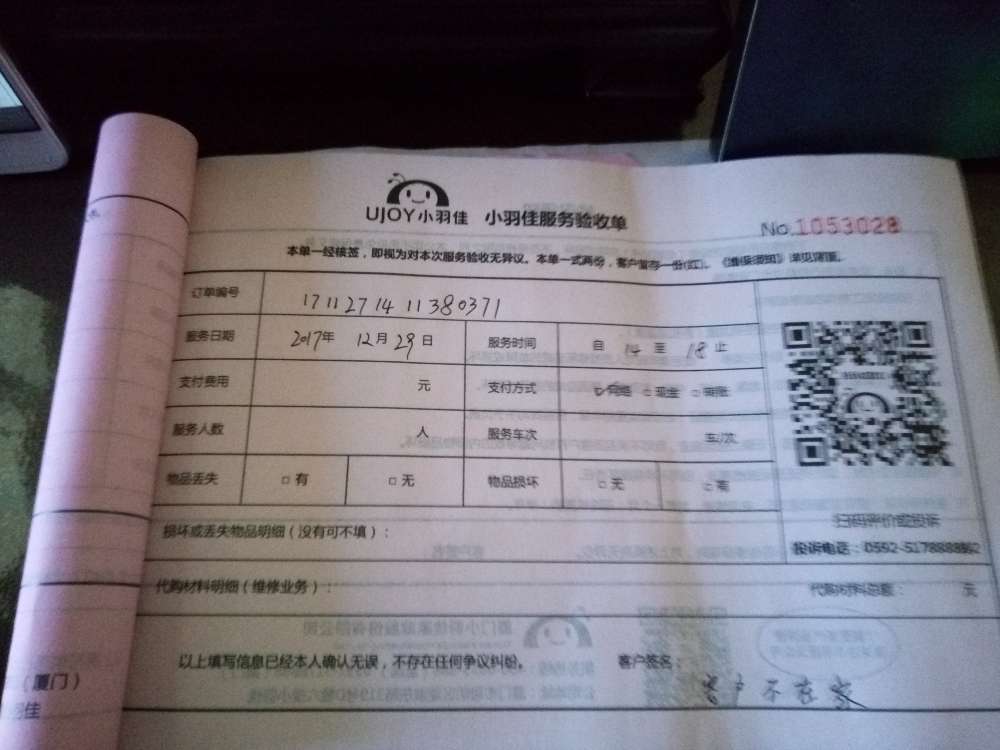 UJOY小羽佳 小羽佳服务验收单
No.1053028
本单一经核签，即视为对本次服务验收无异议。本单一式两份，客户留存一份(红)。《服务须知》详见背面。
订单编号 1711271411380371
服务日期 2017年 12月29日 服务时间 自 14 至 18 止
支付费用 元 支付方式 ☑网络 □现金 □转账
服务人数 人 服务车次 车/次
物品丢失 □有 □无 物品损坏 □无 □有
扫码评价或投诉
损坏或丢失物品明细（没有可不填）：
投诉电话：
代购材料明细（维修业务）： 代购材料总额： 元
以上填写信息已经本人确认无误，不存在任何争议纠纷。 客户签名：
客户不在家
（厦门）
羽佳